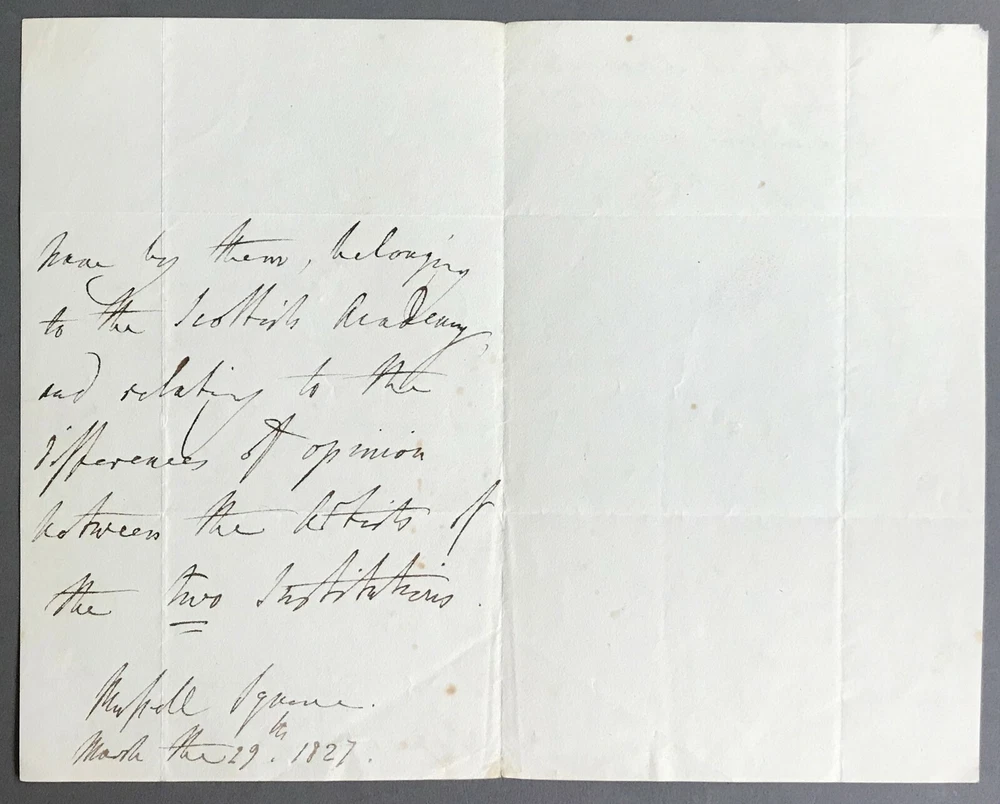 have by them, belonging
to the Scottish Academy,
and relating to the
differences of opinion
between the Artists of
the two Institutions.
Russell Square.
March the 29th. 1827.